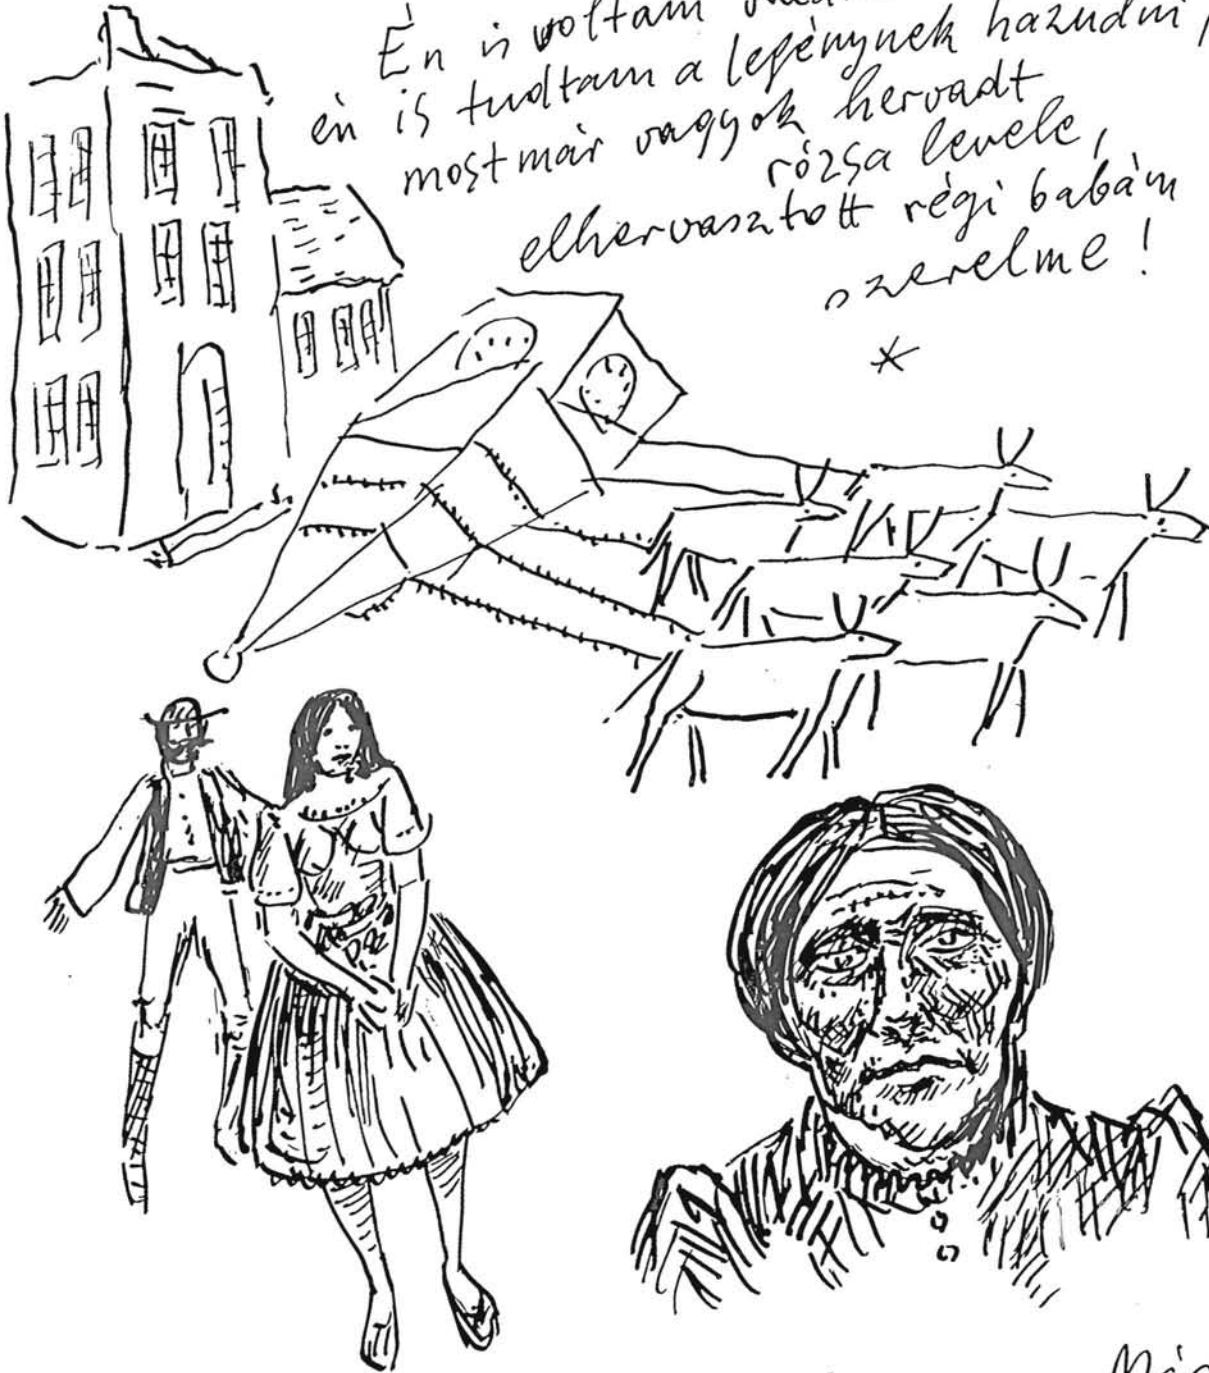 Én is voltam
én is tudtam a legénynek hazudni,
mostmár vagyok hervadt
rózsa levele,
elhervasztott régi babám
szerelme!
*